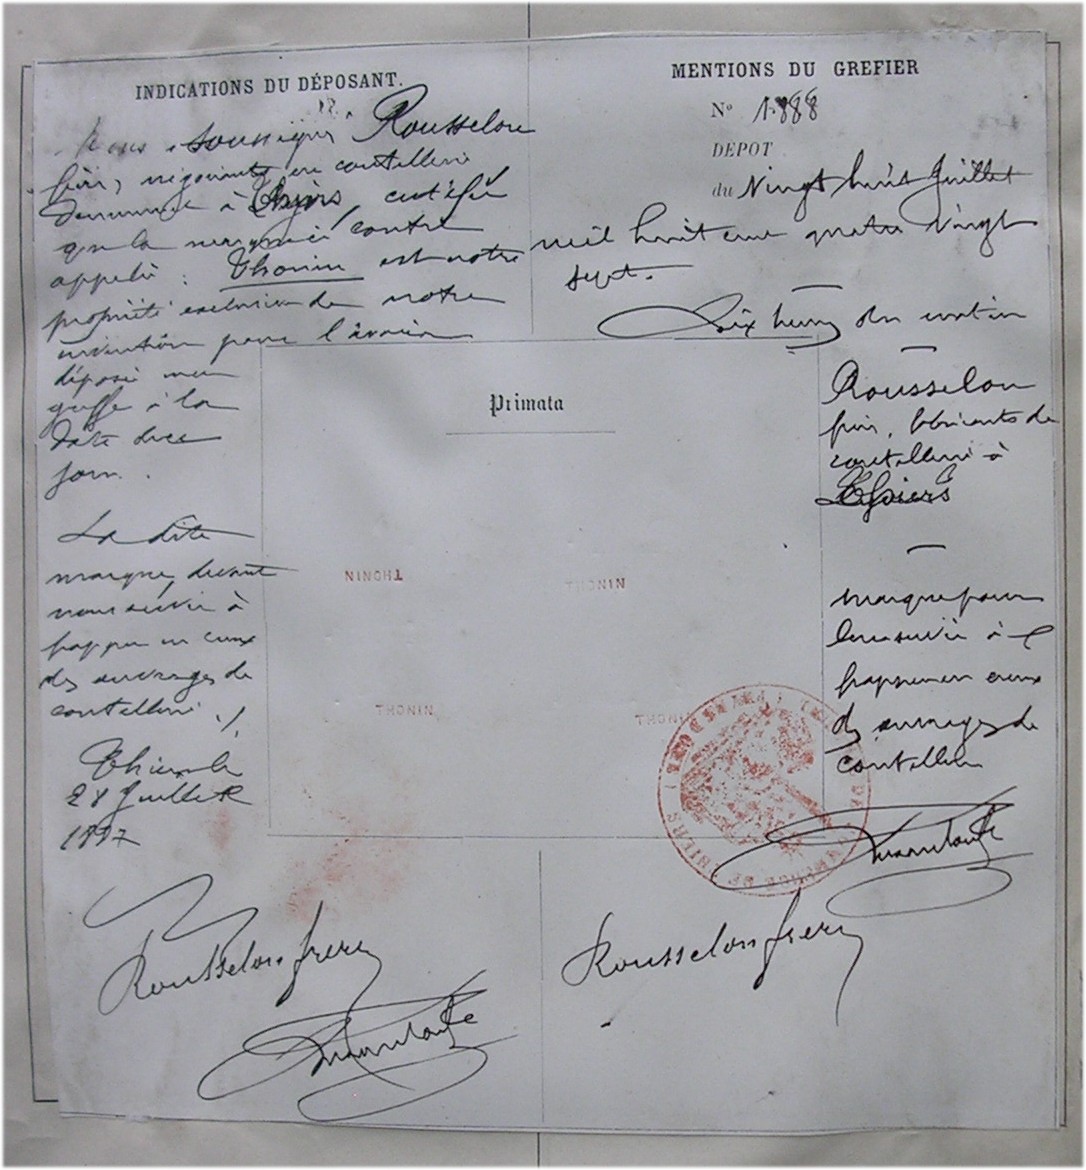 INDICATIONS DU DÉPOSANT.
Nous soussignés Rousselon
frères, négociants en coutellerie
demeurant à Thiers, certifié
que la marque ci contre
appelée : Thonin est notre
propriété exclusive de notre
invention pour l'avoir
déposé au
greffe à la
date de ce
jour.
La dite
marque, devant
nous servir à
frapper en creux
des ouvrages de
coutellerie ./.
Thiers le
28 Juillet
1887
Rousselon frères
MENTIONS DU GREFIER
N° 1888
DEPOT
du Vingt huit Juillet
mil huit cent quatre vingt
sept.
Dix heures du matin
Rousselon
frères, fabricants de
coutellerie à
Thiers
Marque pour
leur servir à
frapper en creux
des ouvrages de
coutellerie
Rousselon frères
Primata
THONIN
THONIN
THONIN
THONIN